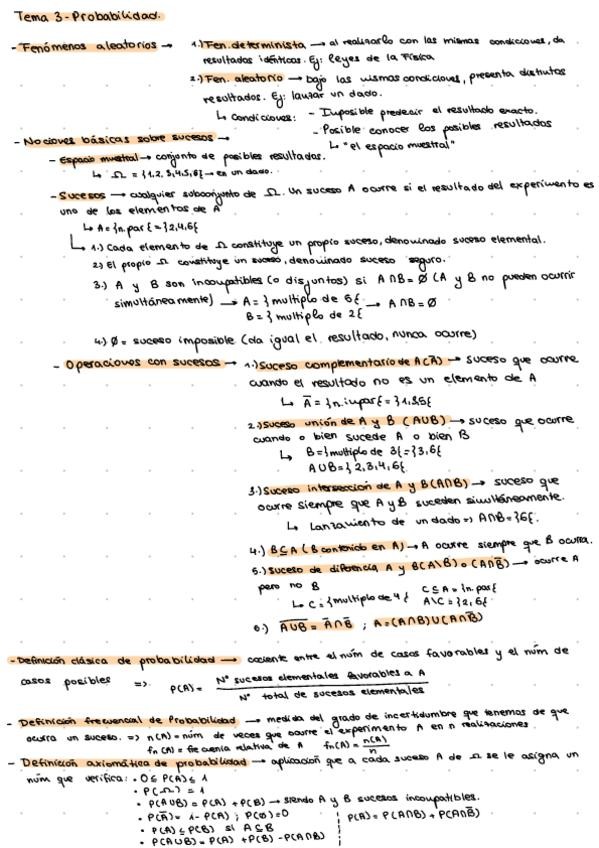 Tema 3 - Probabilidad.
- Fenómenos aleatorios → 1.) Fen. determinista → al realizarlo con las mismas condiciones, da
resultados idénticos. Ej: leyes de la Física
2.) Fen. aleatorio → bajo las mismas condiciones, presenta distintos
resultados. Ej: lanzar un dado.
↳ Condiciones: - Imposible predecir el resultado exacto.
- Posible conocer los posibles resultados
↳ "el espacio muestral"
- Nociones básicas sobre sucesos →
- Espacio muestral → conjunto de posibles resultados.
↳ Ω = {1,2,3,4,5,6} → en un dado.
- Sucesos → cualquier subconjunto de Ω. Un suceso A ocurre si el resultado del experimento es
uno de los elementos de A
↳ A = {n. par} = {2,4,6}
↳ 1.) Cada elemento de Ω constituye un propio suceso, denominado suceso elemental.
2.) El propio Ω constituye un suceso, denominado suceso seguro.
3.) A y B son incompatibles (o disjuntos) si A∩B = Ø (A y B no pueden ocurrir
simultáneamente) → A = {multiplo de 5} → A∩B = Ø
B = {multiplo de 2}
4.) Ø = suceso imposible (da igual el resultado, nunca ocurre)
- Operaciones con sucesos → 1.) Suceso complementario de A (A̅) → suceso que ocurre
cuando el resultado no es un elemento de A
↳ A̅ = {n. impar} = {1,3,5}
2.) Suceso unión de A y B (A∪B) → suceso que ocurre
cuando o bien sucede A o bien B
↳ B = {multiplo de 3} = {3,6}
A∪B = {2,3,4,6}
3.) Suceso intersección de A y B (A∩B) → suceso que
ocurre siempre que A y B suceden simultáneamente.
↳ Lanzamiento de un dado => A∩B = {6}.
4.) B⊆A (B contenido en A) → A ocurre siempre que B ocurra.
5.) Suceso de diferencia A y B (A\B) o (A∩B̅) → ocurre A
pero no B
↳ C = {multiplo de 4} C⊆A = {n. par}
A\C = {2,6}
6.) A∪B̅ = A̅∩B̅ ; A = (A∩B)∪(A∩B̅)
- Definición clásica de probabilidad → cociente entre el núm de casos favorables y el núm de
casos posibles => P(A) = Nº sucesos elementales favorables a A / Nº total de sucesos elementales
- Definición frecuencial de Probabilidad → medida del grado de incertidumbre que tenemos de que
ocurra un suceso. => n(A) = núm de veces que ocurre el experimento A en n realizaciones.
fn(A) = frecuencia relativa de A fn(A) = n(A)/n
- Definición axiomática de probabilidad → aplicación que a cada suceso A de Ω se le asigna un
núm que verifica: • 0 ≤ P(A) ≤ 1
• P(Ω) = 1
• P(A∪B) = P(A) + P(B) → siendo A y B sucesos incompatibles.
• P(A̅) = 1 - P(A) ; P(Ø) = 0 P(A) = P(A∩B) + P(A∩B̅)
• P(A) ≤ P(B) si A⊆B
• P(A∪B) = P(A) + P(B) - P(A∩B)